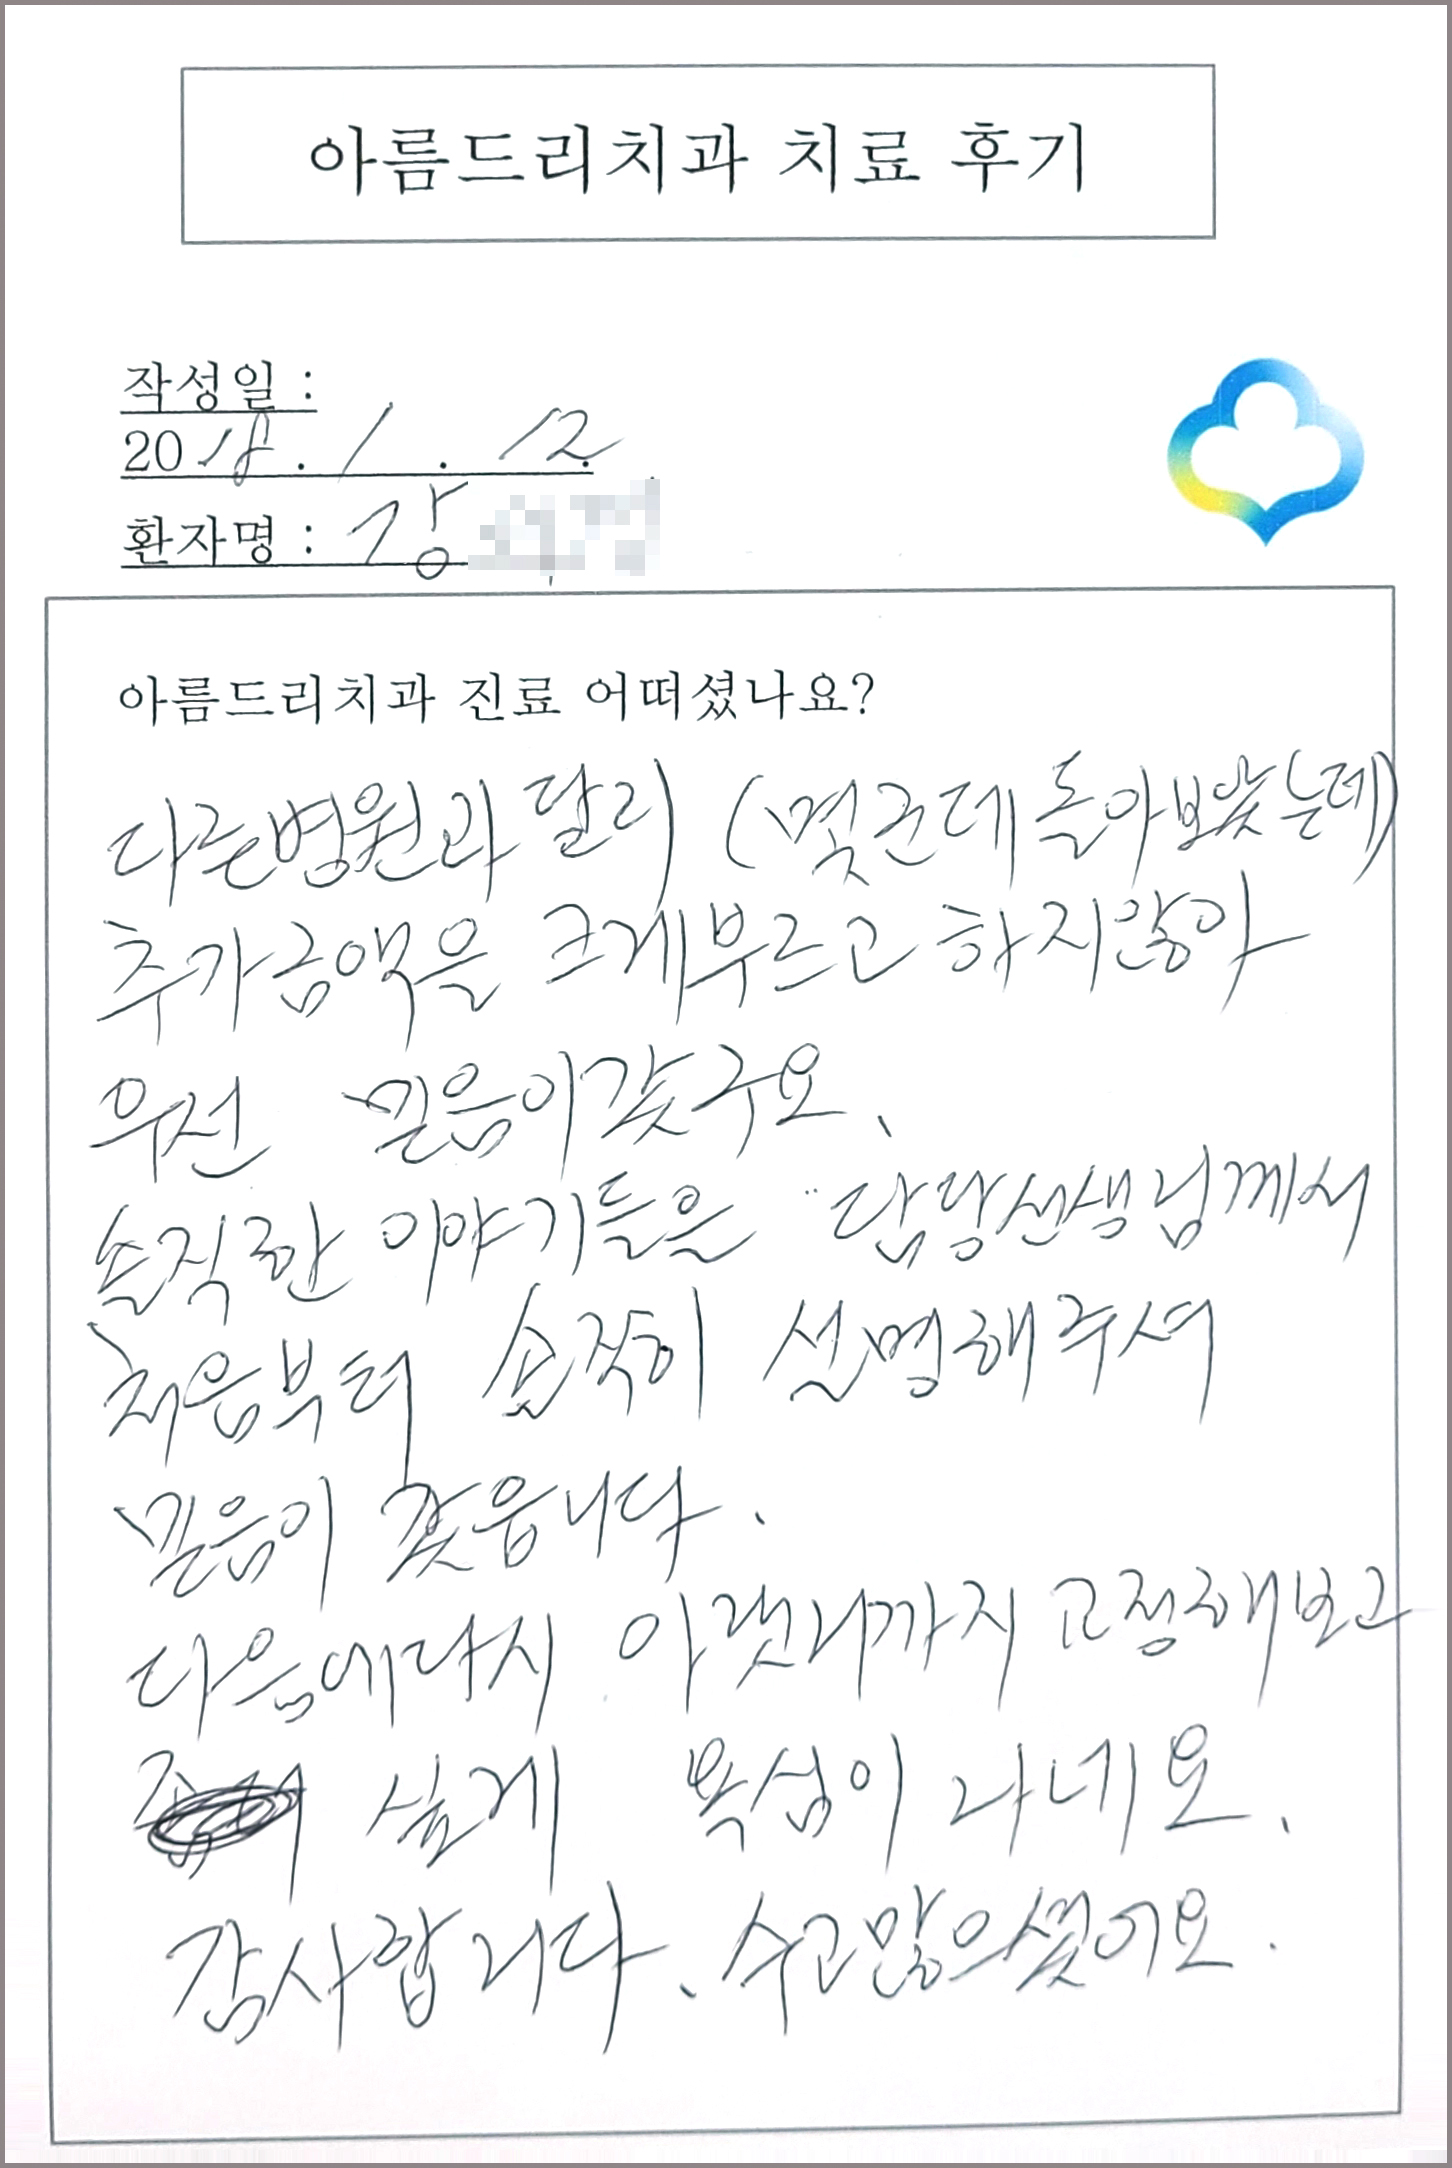 아름드리치과 치료 후기
작성일 :
2018. 1. 12.
환자명 : 강
아름드리치과 진료 어떠셨나요?
다른병원과 달리 (몇군데 돌아보았는데)
추가금액을 크게부르고 하지않아
우선 믿음이갖구요.
솔직한 이야기들은 담당선생님께서
처음부터 솔직히 설명해주셔
믿음이 갖읍니다.
다음에다시 아랫니까지 교정해보고
싶게 욕심이 나네요.
감사합니다. 수고많으셨어요.